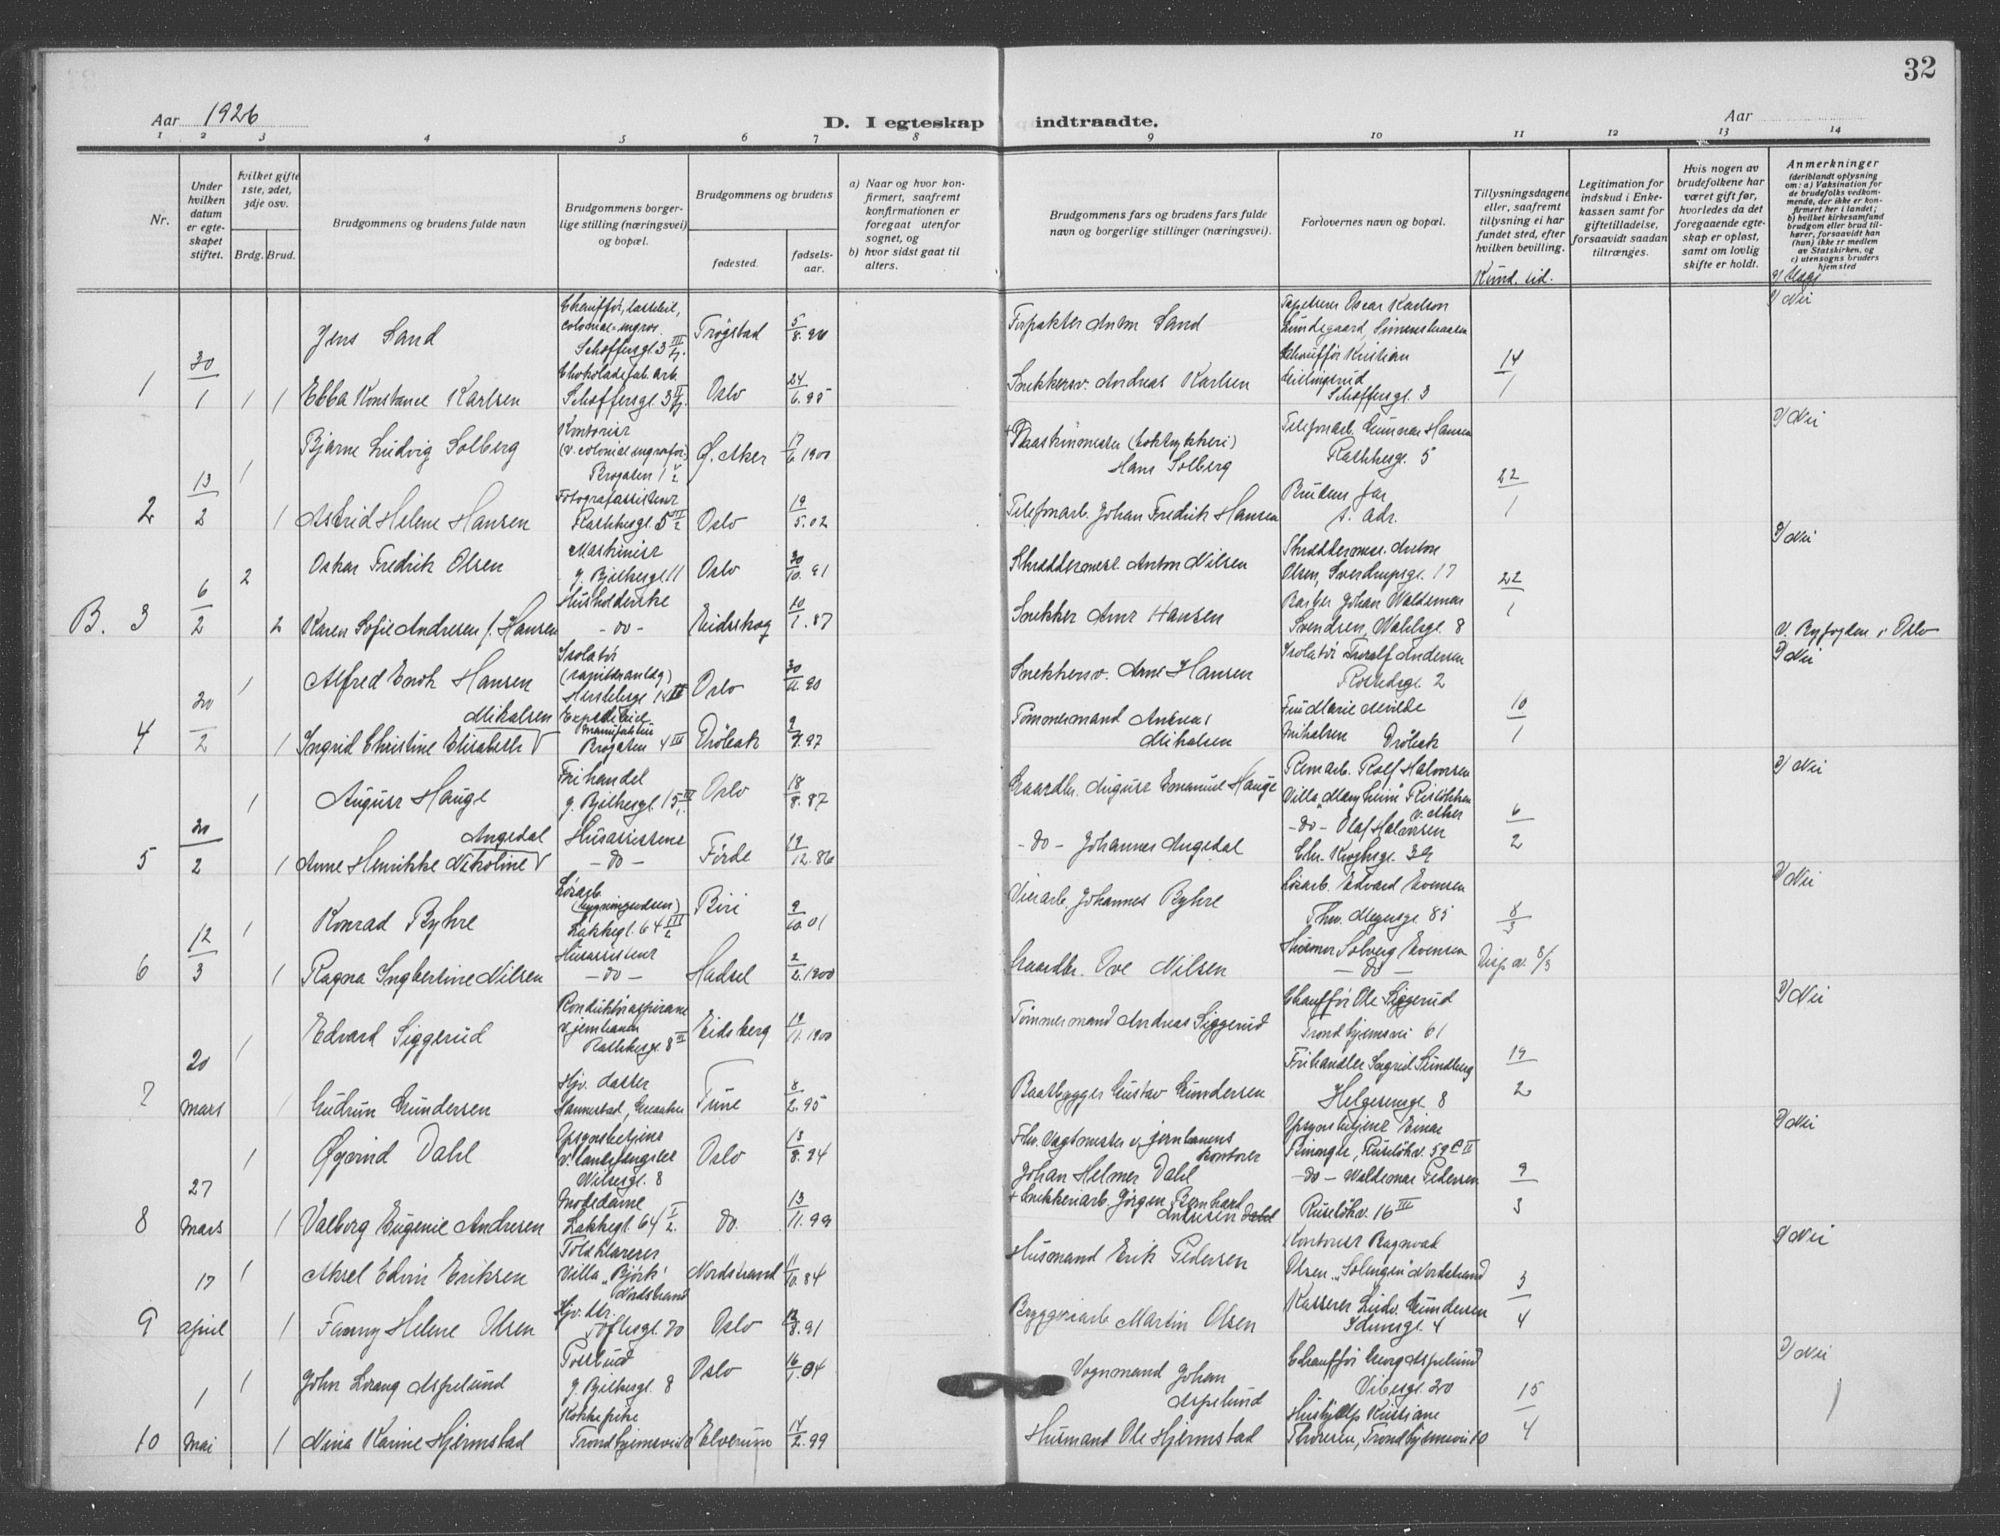 32
Aar 1926
D. I egteskap indtraadte.
Aar
1 2 3 4 5 6 7 8 9 10 11 12 13 14
Nr.
Under hvilken datum er egteskapet stiftet.
hvilket gifte 1ste, 2det, 3dje osv.
Brdg. Brud.
Brudgommens og brudens fulde navn
Brudgommens borgerlige stilling (næringsvei) og bopæl.
Brudgommens og brudens
fødested.
fødselsaar.
a) Naar og hvor konfirmert, saafremt konfirmationen er foregaat utenfor sognet, og
b) hvor sidst gaat til alters.
Brudgommens fars og brudens fars fulde navn og borgerlige stillinger (næringsvei).
Forlovernes navn og bopæl.
Tillysningsdagene eller, saafremt tillysning ei har fundet sted, efter hvilken bevilling.
Legitimation for indskud i Enkekassen samt for giftetilladelse, forsaavidt saadan tiltrænges.
Hvis nogen av brudefolkene har været gift før, hvorledes da det foregaaende egteskap er opløst, samt om lovlig skifte er holdt.
Anmerkninger (deriblandt oplysning om: a) Vaksination for de brudefolks vedkommende, der ikke er konfirmert her i landet; b) hvilket kirkesamfund brudgom eller brud tilhører, forsaavidt han (hun) ikke er medlem av Statskirken, og c) utensogns bruders hjemsted
Jens Sand
Schøffersgt. 3
Trøgstad
Forpakter Anton Sand
Tapetserer Oscar Karlson
Nei
1 30/1 1 1 Ebba Konstance Karlsen
Chokoladefab. arb.
Schøffersgt. 3
Oslo 24/6.95
Snekkersv. Andreas Karlsen
Chauffør Kristian
Schøffersgt. 3
14/1
Bjarne Ludvig Solberg
Kontorist
Brogaten 1
Ø. Aker 17/6 1900
Hans Solberg
Telefonarb. Gunnar Hansen
Rathkesgt. 5
Nei
2 13/2 1 1 Astrid Helene Hansen
Fotografassistent
Rathkesgt. 5
Oslo 19/5.02
Telefonarb. Johan Fredrik Hansen
Brudens far
s. adr.
22/1
Oskar Fredrik Olsen
Maskinist
g. Bjelkesgt 11
Oslo 30/10.91
Skreddermest. Anton Nilsen
Skreddermest. Anton
Olsen, Sverdrupsgt. 17
Nei
B. 3 6/2 2 2 Karen Sofie Andresen f. Hansen
- do -
Eidskog 10/1.87
Snekker Arnt Hansen
Barber Johan Waldemar
Svendsen, Wahlsgt. 8
22/1
v. Byfogden i Oslo
Alfred Enok Hansen
Isolatør
Oslo 30/11.90
Snekkersv. Arne Hansen
Isolatør Thoralf Andersen
Nei
4 20/2 1 1 Ingrid Christine Elisabeth Mikalsen
Brogaten 4 III
Drøbak
Tømmermand Andreas
Mikalsen
Fru Marie Milde
Mikalsen Drøbak
10/1
August Hauge
Frihandel
g. Bjelkesgt. 15
Oslo 18/8.87
Gaardbr. August Emanuel Hauge
Remarb. Rolf Halvorsen
Nei
5 20/2 1 1 Anne Henrikke Nikoline Angedal
Husassistent
- do -
Førde 19/12.86
- do - Johannes Angedal
- do - Olaf Halvorsen
Chr. Kroghsgt. 39
6/2
Konrad Byhre
Løsarb.
Lakkegt. 64
Biri 9/10.01
Johannes Byhre
Løsarb. Edvard Evensen
Thv. Meyersgt. 85
Nei
6 12/3 1 1 Ragna Ingbertine Nilsen
Husassistent
- do -
Hadsel 2/2.1900
Gaardbr. Ove Nilsen
Solveig Evensen
- do -
8/3
Edvard Siggerud
Konduktøraspirant
Rathkesgt. 8
Eidsberg 19/11.1900
Tømmermand Andreas Siggerud
Chauffør Ole Siggerud
Trondhjemsvei 61
Nei
7 20 mars 1 1 Gudrun Gundersen
Hjv. datter
Tune 8/2.95
Baatbygger Gustav Gundersen
Frihandler Ingrid Lindberg
Helgesensgt. 8
19/2
Øyvind Dahl
Nilsesgt. 8
Oslo 13/8.94
Johan Helmer Dahl
Nei
8 27 mars 1 1 Valborg Eugenie Andresen
Motedame
Lakkegt. 64
do. 13/11.99
Jørgen Bernhard
Andresen
- do - Waldemar Pedersen
Ruseløkv. 16 III
9/3
Aksel Edvin Eriksen
Toldklarerer
Villa "Bjørk"
Nordstrand
Nordstrand 11/10.84
Husmand Erik Pedersen
Kontorist Ragnvald
Olsen, "Solengen" Nordstrand
Nei
9 17 april 1 1 Fanny Helene Olsen
Toftesgt. 20
Oslo
Bryggeriarb. Martin Olsen
Kasserer Ludv. Gundersen
Idunsgt. 4
3/4
John Lorang Aspelund
Postbud
g. Bjelkesgt. 8
Oslo 16/1.04
Vognmand Johan
Aspelund
Chauffør Georg Aspelund
Vibesgt. 20
Nei
10 1 mai 1 1 Nina Karine Hjermstad
Trondhjemsvei 10
Elverum 14/2.99
Husmand Ole Hjermstad
Hushjelp Kristiane
Thoresen, Trondhjemsvei 10
15/4